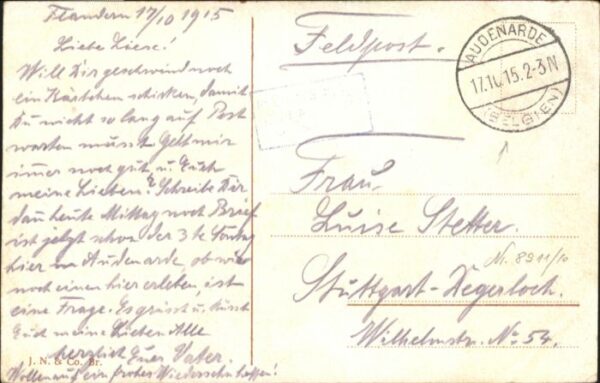 Flandern 17/10 1915
Liebe Liese!
Will Dir geschwind noch
ein Kärtchen schicken, damit
Du nicht so lang auf Post
warten musst. Geht mir
immer noch gut, u. Euch
meine Lieben? Schreibe Dir
dan heute Mittag noch Brief
ist jetzt schon der 3te Sontag
hier in Audenarde, ob wir
noch einen hier erleben ist
eine Frage. Es grüsst u. küsst
Euch meine Lieben Alle
herzlich Euer Vater.
Wollen auf ein frohes Wiedersehn hoffen!
J. N. & Co. Br.
Feldpost.
AUDENARDE
17.10.15.2-3N
(BELGIEN)
Frau
Luise Stetter.
Nr. 8911/10
Stuttgart-Degerloch.
Wilhelmstr. No 54.